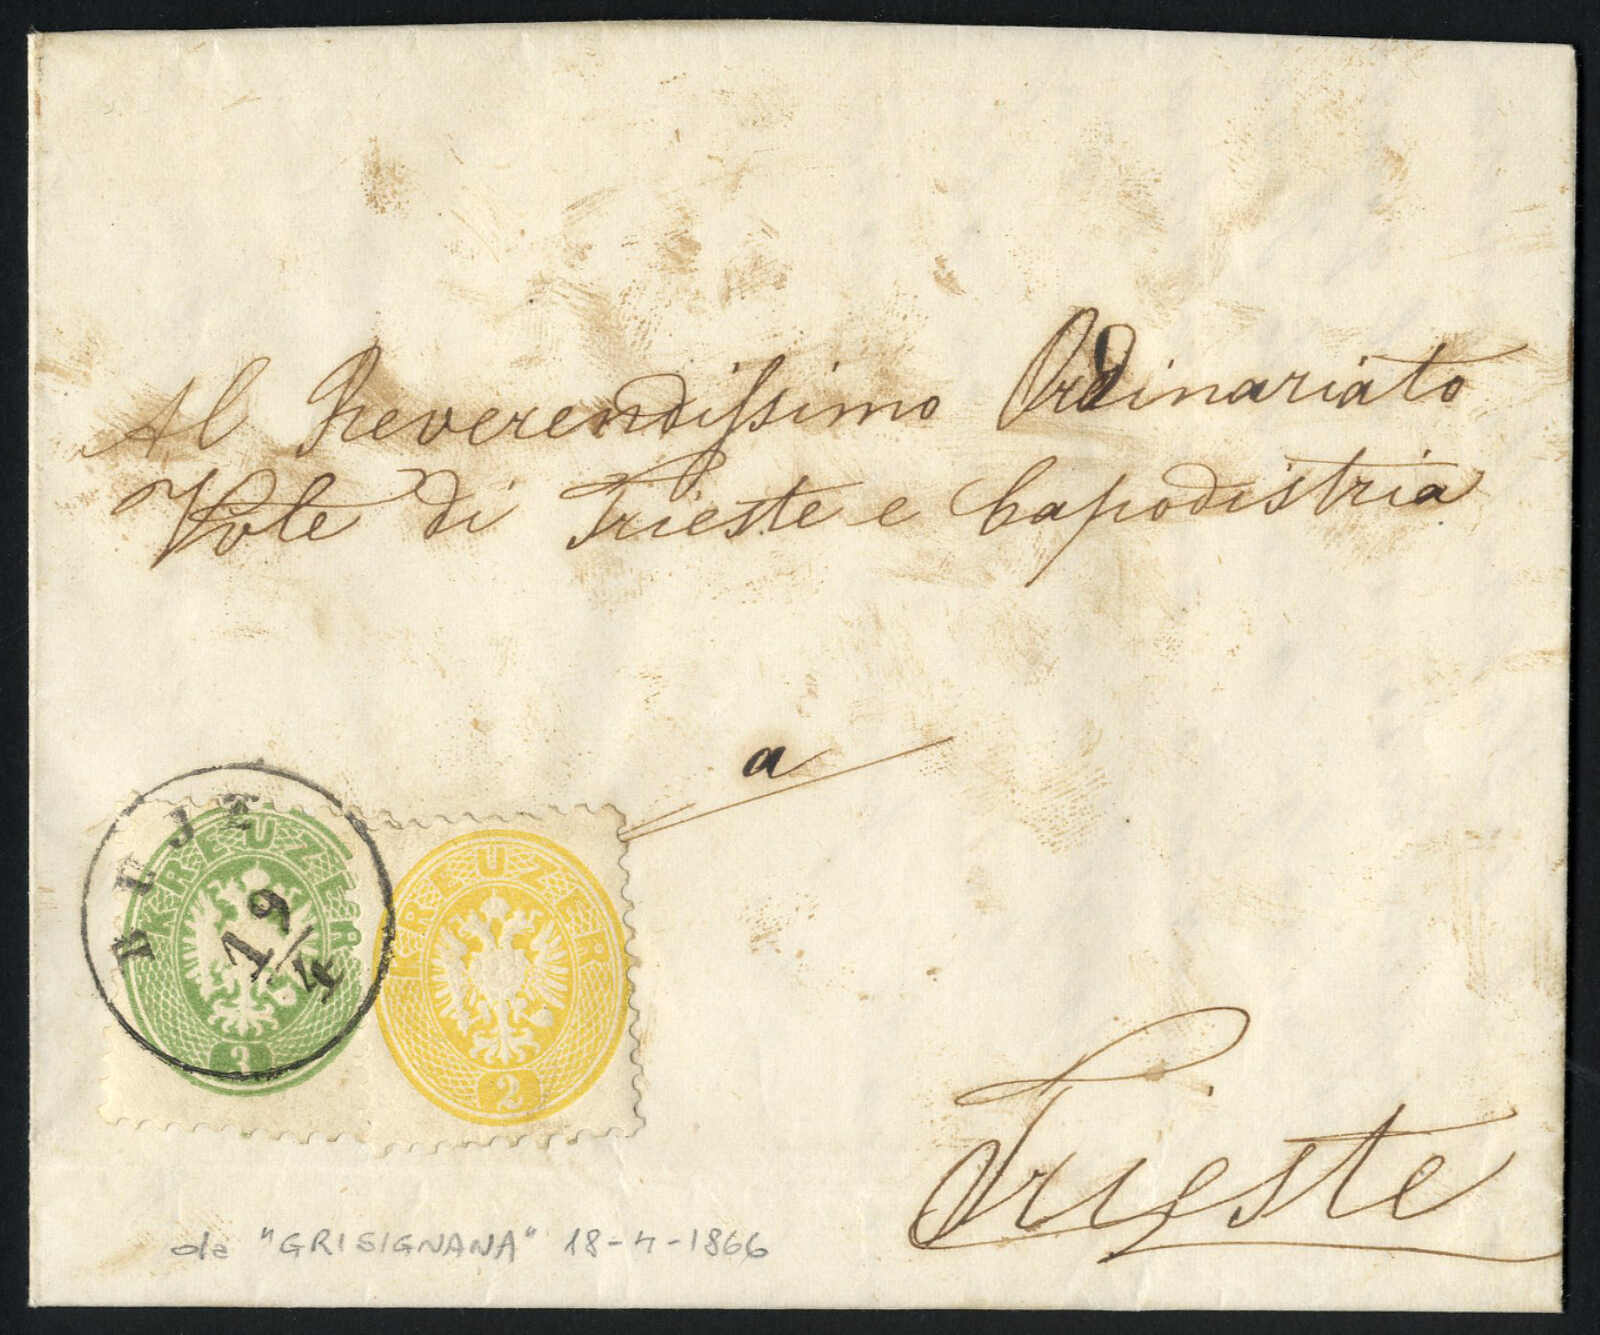 Al Reverendissimo Ordinariato
Vvle di Trieste e Capodistria
a
Trieste
BUJE
19/4
KREUZER
3
KREUZER
2
da "GRISIGNANA" 18-4-1866